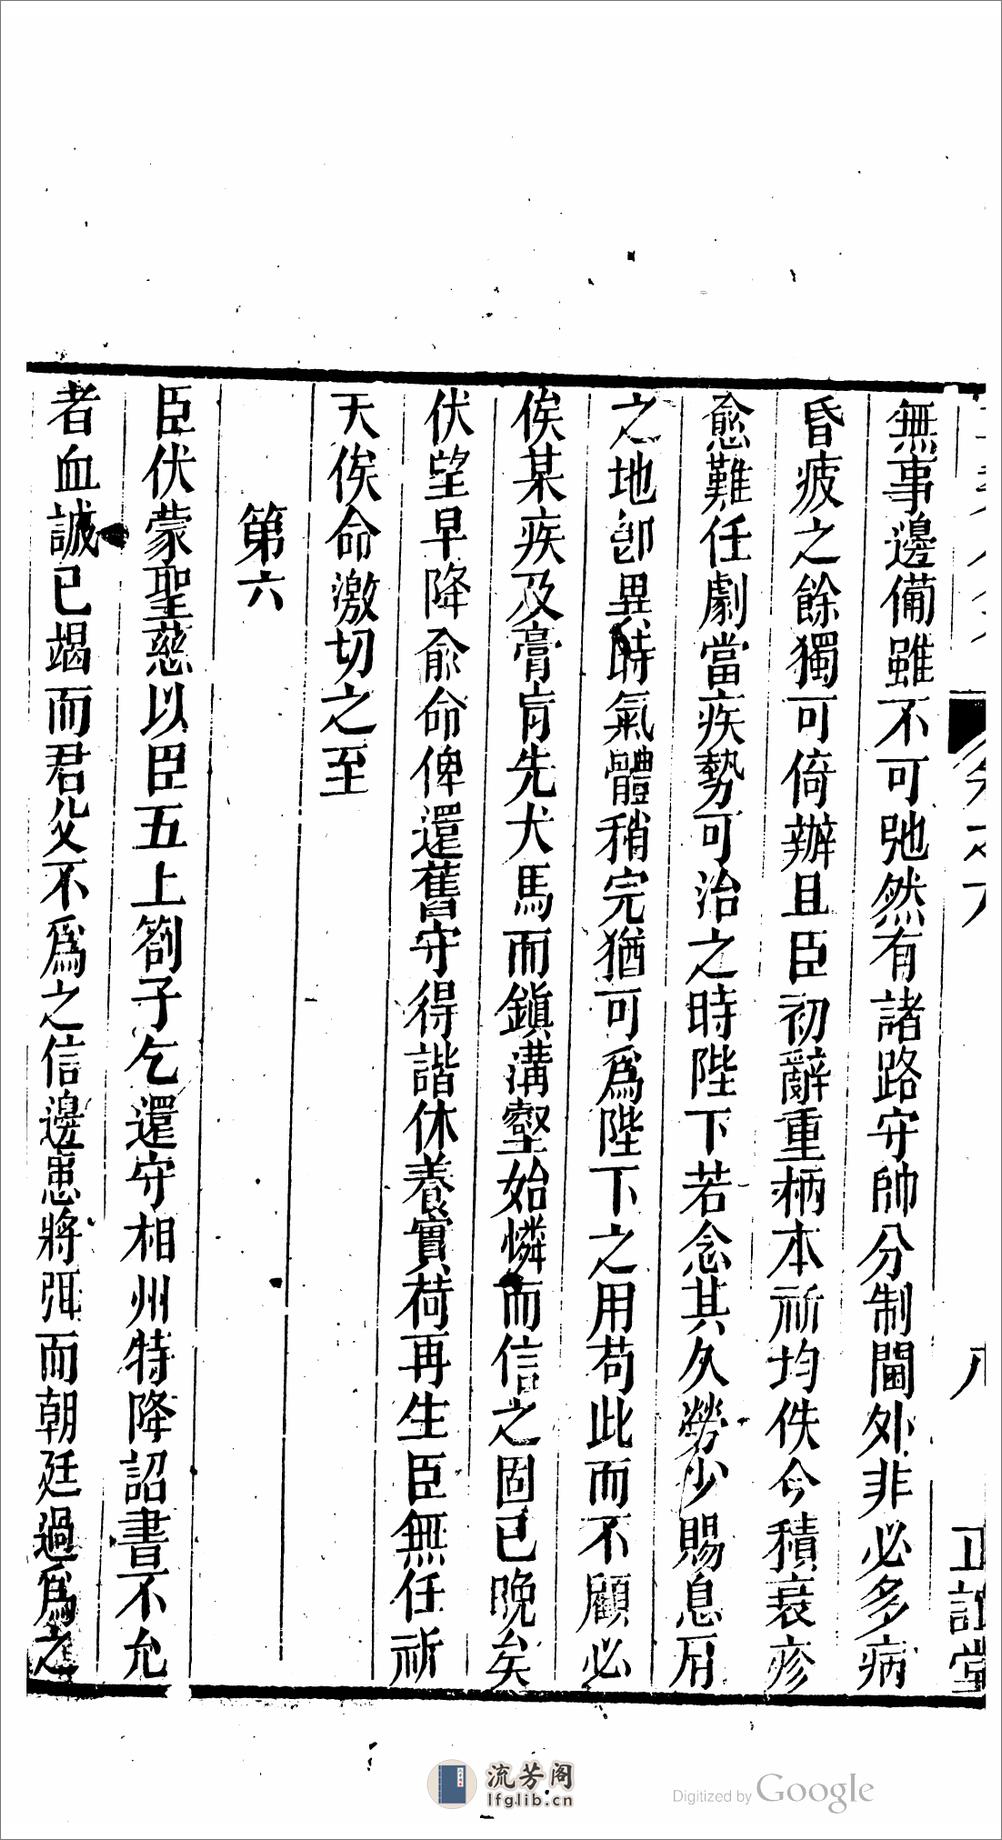 無事邊備雖不可弛然有諸路守帥分制閫外非必多病
昏疲之餘獨可倚辦且臣初辭重柄本祈均佚今積衰疹
愈難任劇當疾勢可治之時陛下若念其久勞少賜息肩
之地卽異時氣體稍完猶可爲陛下之用苟此而不顧必
俟某疾及膏肓先犬馬而鎭溝壑始憐而信之固已晚矣
伏望早降俞命俾還舊守得諧休養實荷再生臣無任祈
天俟命激切之至
第六
臣伏蒙聖慈以臣五上劄子乞還守相州特降詔書不允
者血誠已竭而君父不爲之信邊患將弭而朝廷過爲之
卷之八
八
正誼堂
流芳阁
lfglib.cn
Digitized by Google